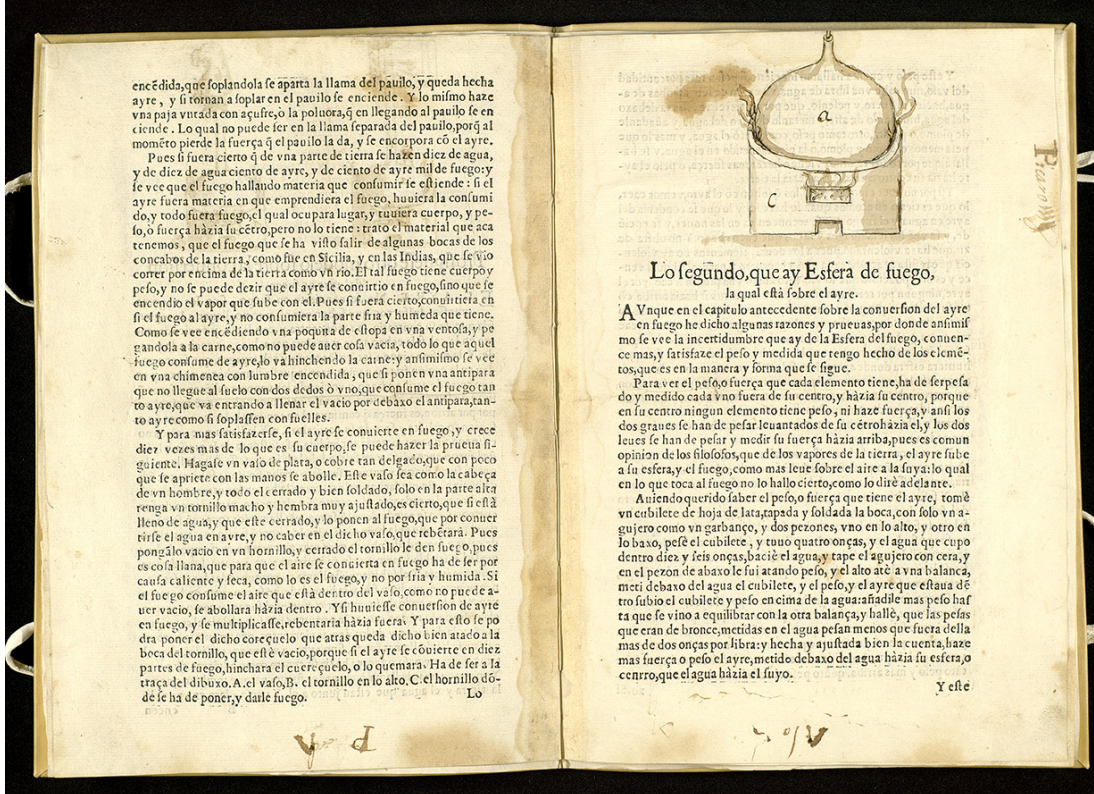 encẽdida,que soplandola se aparta la llama del pauilo, y queda hecha
ayre, y si tornan a soplar en el pauilo se enciende. Y lo mismo haze
vna paja vntada con açufre,ò la poluora,q̃ en llegando al pauilo se en
ciende. Lo qual no puede ser en la llama separada del pauilo,porq̃ al
momẽto pierde la fuerça q̃ el pauilo la da, y se encorpora cõ el ayre.
Pues si fuera cierto q̃ de vna parte de tierra se hazen diez de agua,
y de diez de agua ciento de ayre, y de ciento de ayre mil de fuego: y
se vee que el fuego hallando materia que consumir se estiende: si el
ayre fuera materia en que emprendiera el fuego, huuiera la consumi
do,y todo fuera fuego,el qual ocupara lugar,y tuuiera cuerpo, y pe-
so,ò fuerça hàzia su cẽtro,pero no lo tiene: trato el material que aca
tenemos, que el fuego que se ha visto salir de algunas bocas de los
concabos de la tierra, como fue en Sicilia, y en las Indias, que se vio
correr por encima de la tierra como vn rio. El tal fuego tiene cuerpo y
peso,y no se puede dezir que el ayre se conuirtio en fuego,sino que se
encendio el vapor que sube con el. Pues si fuera cierto,conuirtiera en
si el fuego al ayre,y no consumiera la parte fria y humeda que tiene.
Como se vee encẽdiendo vna poquita de estopa en vna ventosa,y pe
gandola a la carne,como no puede auer cosa vacia, todo lo que aquel
fuego consume de ayre,lo va hinchendo la carne: y ansimismo se vee
en vna chimenea con lumbre encendida, que si ponen vna antipara
que no llegue al suelo con dos dedos ò vno,que consume el fuego tan
to ayre,que va entrando a llenar el vacio por debaxo el antipara,tan-
to ayre como si soplassen con fuelles.
Y para mas satisfazerse, si el ayre se conuierte en fuego, y crece
diez vezes mas de lo que es su cuerpo,se puede hazer la prueua si-
guiente. Hagase vn vaso de plata, o cobre tan delgado,que con poco
que se apriete con las manos se abolle. Este vaso sea como la cabeça
de vn hombre,y todo el cerrado y bien soldado, solo en la parte alta
tenga vn tornillo macho y hembra muy ajustado,es cierto,que si està
lleno de agua,y que este cerrado,y lo ponen al fuego,que por conuer
tirse el agua en ayre, y no caber en el dicho vaso,que rebẽtarà. Pues
pongãlo vacio en vn hornillo,y cerrado el tornillo le den fuego,pues
es cosa llana,que para que el aire se concierta en fuego ha de ser por
causa caliente y seca, como lo es el fuego,y no por fria y humida. Si
el fuego consume el aire que està dentro del vaso,como no puede a-
uer vacio, se abollara hàzia dentro. Y si huuiesse conuersion de ayre
en fuego, y se multiplicasse,rebentaria hàzia fuera. Y para esto se po
dra poner el dicho coreçuelo que atras queda dicho bien atado a la
boca del tornillo, que estè vacio,porque si el ayre se cõuierte en diez
partes de fuego,hinchara el cuereçuelo, o lo quemarà. Ha de ser a la
traça del dibuxo. A.el vaso,B. el tornillo en lo alto, C.el hornillo dõ-
de se ha de poner,y darle fuego.
Lo
a
C
Lo segundo,que ay Esfera de fuego,
la qual està sobre el ayre.
AVnque en el capitulo antecedente sobre la conuersion del ayre
en fuego he dicho algunas razones y prueuas,por donde ansimis
mo se vee la incertidumbre que ay de la Esfera del fuego, conuen-
ce mas,y satisfaze el peso y medida que tengo hecho de los elemẽ-
tos,que es en la manera y forma que se sigue.
Para ver el peso,o fuerça que cada elemento tiene,ha de ser pesa
do y medido cada vno fuera de su centro,y hàzia su centro, porque
en su centro ningun elemento tiene peso, ni haze fuerça,y ansi los
dos graues se han de pesar leuantados de su cẽtro hàzia el,y los dos
leues se han de pesar y medir su fuerça hàzia arriba,pues es comun
opinion de los filosofos,que de los vapores de la tierra, el ayre sube
a su esfera,y el fuego,como mas leue sobre el aire a la suya: lo qual
en lo que toca al fuego no lo hallo cierto,como lo dirè adelante.
Auiendo querido saber el peso,o fuerça que tiene el ayre, tomè
vn cubilete de hoja de lata,tapada y soldada la boca,con solo vn a-
gujero como vn garbanço, y dos pezones, vno en lo alto, y otro en
lo baxo, pesè el cubilete, y tuuo quatro onças, y el agua que cupo
dentro diez y seis onças,baciè el agua,y tape el agujero con cera,y
en el pezon de abaxo le fui atando peso,y el alto atè a vna balança,
meti debaxo del agua el cubilete, y el peso,y el ayre que estaua dẽ
tro subio el cubilete y peso encima de la agua: añadile mas peso has
ta que se vino a equilibrar con la otra balança,y hallè, que las pesas
que eran de bronce,metidas en el agua pesan menos que fuera della
mas de dos onças por libra: y hecha y ajustada bien la cuenta,haze
mas fuerça o peso el ayre,metido debaxo del agua hàzia su esfera,o
centro,que el agua hàzia el suyo.
Y este